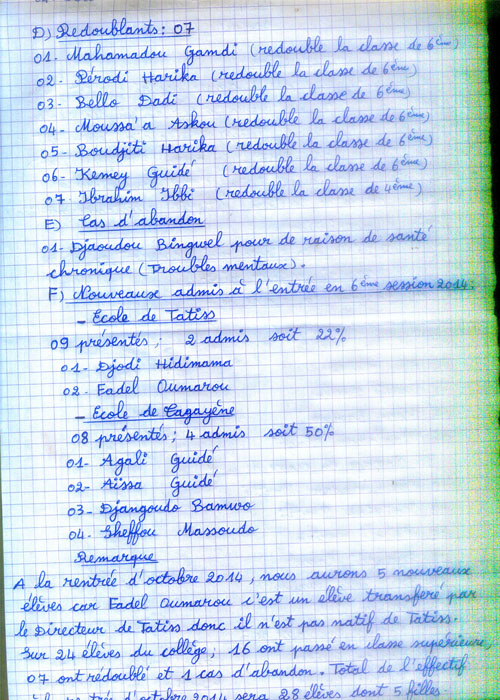 D) Redoublants: 07
01. Mahamadou Gamdi (redouble la classe de 6ème)
02 - Pérodi Harika (redouble la classe de 6ème)
03 - Bello Dadi (redouble la classe de 6ème)
04 - Moussa'a Askou (redouble la classe de 6ème)
05 - Boudjiti Harika (redouble la classe de 6ème)
06 - Kemey Guidé (redouble la classe de 6ème)
07 Ibrahim Ibbi (redouble la classe de 4ème)
E) Cas d'abandon
01 - Djaoudou Bingwel pour de raison de santé
chronique (Troubles mentaux).
F) Nouveaux admis à l'entrée en 6ème session 2014:
- Ecole de Tatiss
09 présentés; 2 admis soit 22%
01 - Djodi Hidimama
02 - Eadel Oumarou
- Ecole de Tagayène
08 présentés; 4 admis soit 50%
01 - Agali Guidé
02 - Aïssa Guidé
03 - Djangoudo Bamwo
04 - Sheffou Massoudo
Remarque
A la rentrée d'octobre 2014, nous aurons 5 nouveaux
élèves car Eadel Oumarou c'est un élève transferé par
le Directeur de Tatiss donc il n'est pas natif de Tatiss.
Sur 24 élèves du collège, 16 ont passé en classe supérieure,
07 ont rédoublé et 1 cas d'abandon. Total de l'effectif
d'octobre 2014 sera 28 élèves dont 5 filles